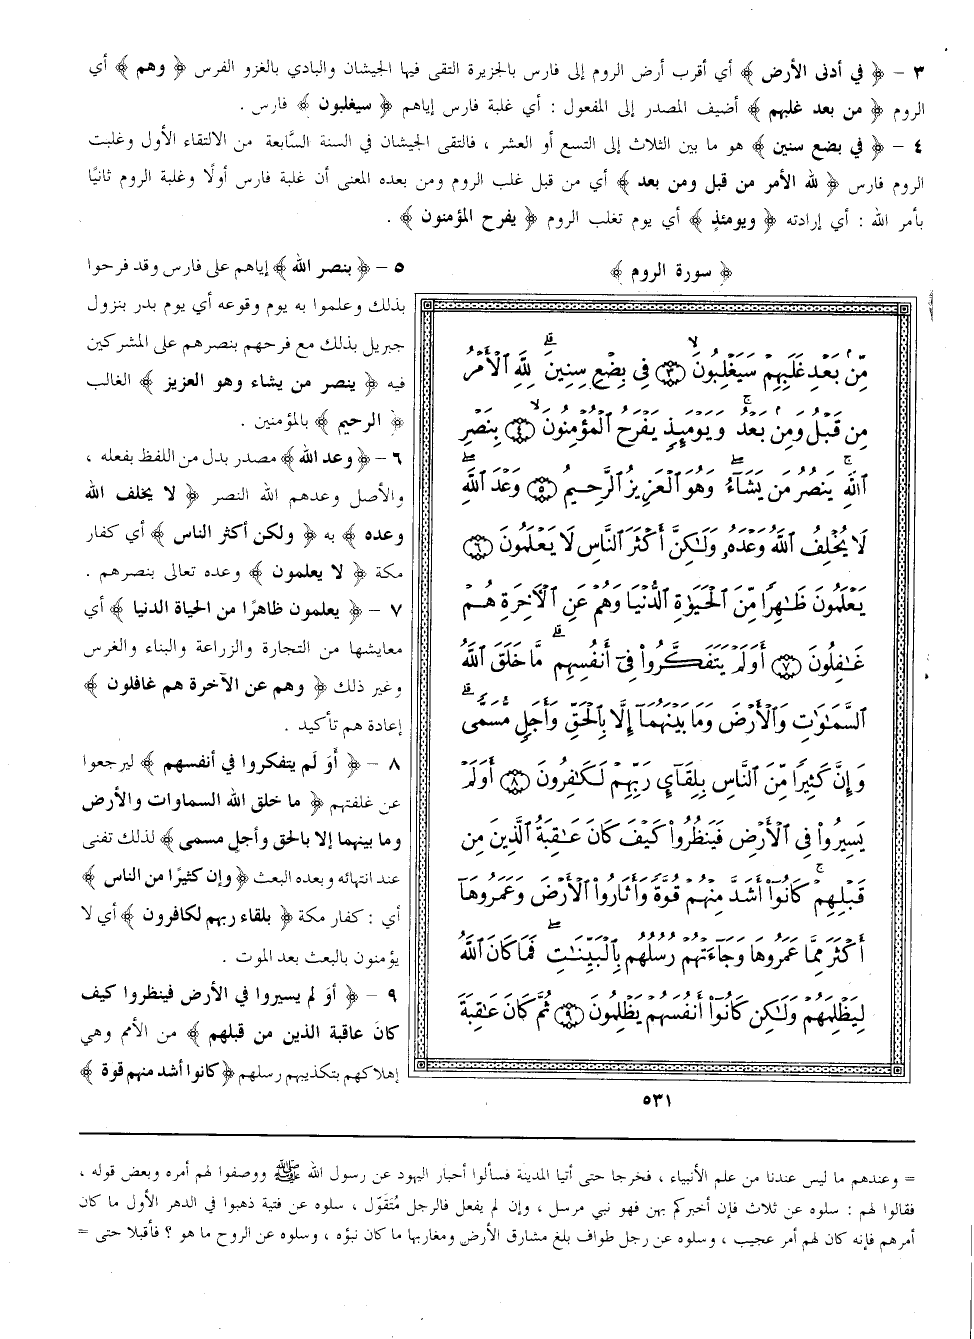 ٣ – ﴿ في أدنى الأرض ﴾ أي أقرب أرض الروم إلى فارس بالجزيرة التقى فيها الجيشان والبادي بالغزو الفرس ﴿ وهم ﴾ أي
الروم ﴿ من بعد غلبهم ﴾ أضيف المصدر إلى المفعول : أي غلبة فارس إياهم ﴿ سيغلبون ﴾ فارس .
٤ – ﴿ في بضع سنين ﴾ هو ما بين الثلاث إلى التسع أو العشر ، فالتقى الجيشان في السنة السَّابعة من الالتقاء الأول وغلبت
الروم فارس ﴿ لله الأمر من قبل ومن بعد ﴾ أي من قبل غلب الروم ومن بعده المعنى أن غلبة فارس أولًا وغلبة الروم ثانيًا
بأمر الله : أي إرادته ﴿ ويومئذٍ ﴾ أي يوم تغلب الروم ﴿ يفرح المؤمنون ﴾ .
﴿ سورة الروم ﴾
مِّنۢ بَعۡدِ غَلَبِهِمۡ سَيَغۡلِبُونَ ۝٣ فِي بِضۡعِ سِنِينَۗ لِلَّهِ ٱلۡأَمۡرُ
مِن قَبۡلُ وَمِنۢ بَعۡدُۚ وَيَوۡمَئِذٖ يَفۡرَحُ ٱلۡمُؤۡمِنُونَ ۝٤ بِنَصۡرِ
ٱللَّهِۚ يَنصُرُ مَن يَشَآءُۖ وَهُوَ ٱلۡعَزِيزُ ٱلرَّحِيمُ ۝٥ وَعۡدَ ٱللَّهِۖ
لَا يُخۡلِفُ ٱللَّهُ وَعۡدَهُۥ وَلَٰكِنَّ أَكۡثَرَ ٱلنَّاسِ لَا يَعۡلَمُونَ ۝٦
يَعۡلَمُونَ ظَٰهِرٗا مِّنَ ٱلۡحَيَوٰةِ ٱلدُّنۡيَا وَهُمۡ عَنِ ٱلۡأٓخِرَةِ هُمۡ
غَٰفِلُونَ ۝٧ أَوَلَمۡ يَتَفَكَّرُواْ فِيٓ أَنفُسِهِمۗ مَّا خَلَقَ ٱللَّهُ
ٱلسَّمَٰوَٰتِ وَٱلۡأَرۡضَ وَمَا بَيۡنَهُمَآ إِلَّا بِٱلۡحَقِّ وَأَجَلٖ مُّسَمّٗىۗ
وَإِنَّ كَثِيرٗا مِّنَ ٱلنَّاسِ بِلِقَآيِٕ رَبِّهِمۡ لَكَٰفِرُونَ ۝٨ أَوَلَمۡ
يَسِيرُواْ فِي ٱلۡأَرۡضِ فَيَنظُرُواْ كَيۡفَ كَانَ عَٰقِبَةُ ٱلَّذِينَ مِن
قَبۡلِهِمۡۚ كَانُوٓاْ أَشَدَّ مِنۡهُمۡ قُوَّةٗ وَأَثَارُواْ ٱلۡأَرۡضَ وَعَمَرُوهَآ
أَكۡثَرَ مِمَّا عَمَرُوهَا وَجَآءَتۡهُمۡ رُسُلُهُم بِٱلۡبَيِّنَٰتِۖ فَمَا كَانَ ٱللَّهُ
لِيَظۡلِمَهُمۡ وَلَٰكِن كَانُوٓاْ أَنفُسَهُمۡ يَظۡلِمُونَ ۝٩ ثُمَّ كَانَ عَٰقِبَةَ
٥٣١
٥ – ﴿ بنصر الله ﴾ إياهم على فارس وقد فرحوا
بذلك وعلموا به يوم وقوعه أي يوم بدر بنزول
جبريل بذلك مع فرحهم بنصرهم على المشركين
فيه ﴿ ينصر من يشاء وهو العزيز ﴾ الغالب
﴿ الرحيم ﴾ بالمؤمنين .
٦ – ﴿ وعد الله ﴾ مصدر بدل من اللفظ بفعله ،
والأصل وعدهم الله النصر ﴿ لا يخلف الله
وعده ﴾ به ﴿ ولكن أكثر الناس ﴾ أي كفار
مكة ﴿ لا يعلمون ﴾ وعده تعالى بنصرهم .
٧ – ﴿ يعلمون ظاهرًا من الحياة الدنيا ﴾ أي
معايشها من التجارة والزراعة والبناء والغرس
وغير ذلك ﴿ وهم عن الآخرة هم غافلون ﴾
إعادة هم تأكيد .
٨ – ﴿ أَوَ لَم يتفكروا في أنفسهم ﴾ ليرجعوا
عن غفلتهم ﴿ ما خلق الله السماوات والأرض
وما بينهما إلا بالحق وأجلٍ مسمى ﴾ لذلك تفنى
عند انتهائه وبعده البعث ﴿ وإن كثيرًا من الناس ﴾
أي : كفار مكة ﴿ بلقاء ربهم لكافرون ﴾ أي لا
يؤمنون بالبعث بعد الموت .
٩ – ﴿ أوَ لم يسيروا في الأرض فينظروا كيف
كانَ عاقبة الذين من قبلهم ﴾ من الأمم وهي
إهلاكهم بتكذيبهم رسلهم ﴿ كانوا أشد منهم قوة ﴾
= وعندهم ما ليس عندنا من علم الأنبياء ، فخرجا حتى أتيا المدينة فسألوا أحبار اليهود عن رسول الله ﷺ ووصفوا لهم أمره وبعض قوله ،
فقالوا لهم : سلوه عن ثلاث فإن أخبركم بهن فهو نبي مرسل ، وإن لم يفعل فالرجل مُتَقَوِّل ، سلوه عن فتية ذهبوا في الدهر الأول ما كان
أمرهم فإنه كان لهم أمر عجيب ، وسلوه عن رجل طواف بلغ مشارق الأرض ومغاربها ما كان نبؤه ، وسلوه عن الروح ما هو ؟ فأقبلا حتى =